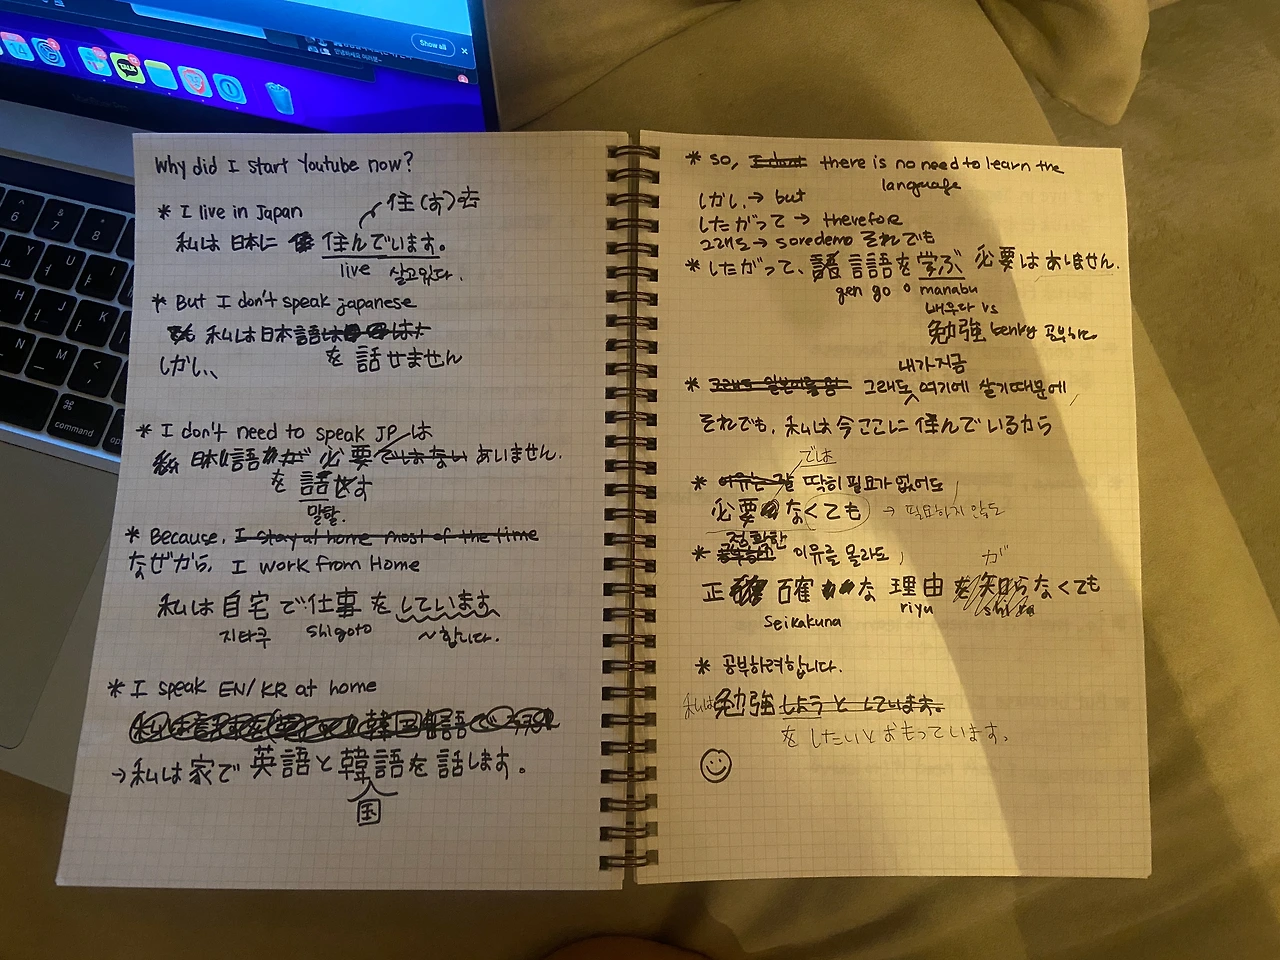 Show all
TALK
Why did I start Youtube now?
* I live in Japan
住(む)
私は 日本に 住んでいます。
live 살고있다.
* But I don't speak japanese
でも 私は日本語は
しかし、 を 話せません
* I don't need to speak JP
は
私 日本語が 必要ではない あいません.
を 話す
말할.
* Because, I stay at home most of the time
なぜから, I work from Home
私は 自宅 で 仕事 を しています
지타쿠 shigoto ~합니다.
* I speak EN/KR at home
→ 私は 家で 英語 と 韓語 を 話します。
国
* So, I dont there is no need to learn the
language
しかし、→ but
したがって → therefore
그래도 → soredemo それでも
* したがって、 言語を 学ぶ 必要は ありません.
gen go o manabu
배우다 vs
勉強 benky 공부하다
내가 지금
* 그래도 여기에 살기때문에,
それでも, 私は今ここに 住んでいるから
では
* 딱히 필요가 없어도,
必要 なくても → 필요하지 않도
정확한
* 이유를 몰라도,
が
正 確 な 理由 を 知らなくても
seikakuna riyu shira
* 공부하려합니다.
私は 勉強 しようと しています。
を したいと おもっています。
6 7 8
command